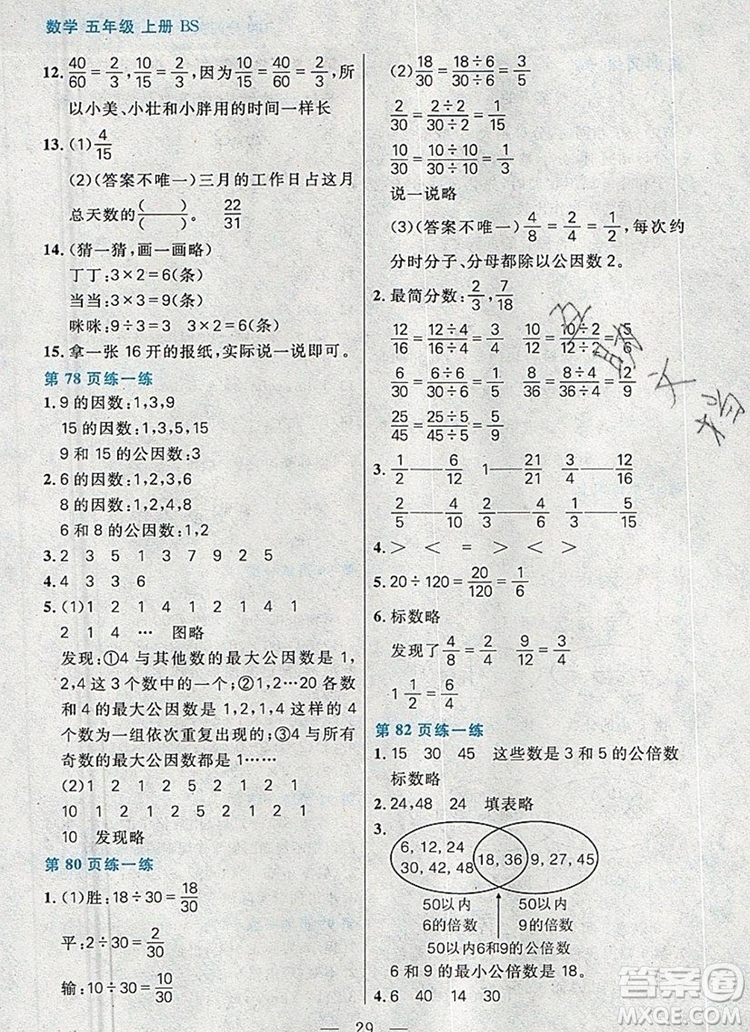 数学 五年级 上册 BS
12. 40/60=2/3, 10/15=2/3, 因为40/60=10/15=2/3, 所
以小美、小壮和小胖用的时间一样长
13. (1) 4/15
(2)(答案不唯一)三月的工作日占这月
总天数的( )/( )。 22/31
14. (猜一猜,画一画略)
丁丁:3×2=6(条)
当当:3×2=6(条)
咪咪:9÷3=3 3×2=6(条)
15. 拿一张 16 开的报纸,实际说一说即可。
第 78 页练一练
1. 9 的因数:1,3,9
15 的因数:1,3,5,15
9 和 15 的公因数:1,3
2. 6 的因数:1,2,3,6
8 的因数:1,2,4,8
6 和 8 的公因数:1,2
3. 2 3 5 1 3 7 9 2 5
4. 4 3 3 6
5. (1) 1 2 1 4 1 2 1 4 1
2 1 4 … 图略
发现:①4 与其他数的最大公因数是 1,
2,4 这 3 个数中的一个;②1,2…20 各数
和 4 的最大公因数是 1,2,1,4 这样的 4
个数为一组依次重复出现的;③4 与所有
奇数的最大公因数都是 1……
(2) 1 2 1 2 5 2 1 2 1
10 1 2 1 2 5 2 1 2 1
10 发现略
第 80 页练一练
1. (1)胜:18÷30=18/30
平:2÷30=2/30
输:10÷30=10/30
(2) 18/30=18÷6/30÷6=3/5
2/30=2÷2/30÷2=1/15
10/30=10÷10/30÷10=1/3
说一说略
(3)(答案不唯一) 4/8=2/4=1/2, 每次约
分时分子、分母都除以公因数 2。
2. 最简分数: 2/3, 7/18
12/16=12÷4/16÷4=3/4 10/12=10÷2/12÷2=5/6
6/36=6÷6/36÷6=1/6 8/36=8÷4/36÷4=2/9
25/45=25÷5/45÷5=5/9
3. 1/2——6/12 1——21/21 3/4——12/16
2/5——4/10 1/3——5/15 2/5——20/50
4. > < < = > <
5. 20÷120=20/120=1/6
6. 标数略
发现了 4/8=2/4 9/12=3/4
1 1/2=6/4
第 82 页练一练
1. 15 30 45 这些数是 3 和 5 的公倍数
标数略
2. 24,48 24 填表略
3.
6, 12, 24 30, 42, 48 18, 36 9, 27, 45
50以内6的倍数 50以内9的倍数
50以内6和9的公倍数
6 和 9 的最小公倍数是 18。
4. 6 40 14 30
29
答案圈
MXQE.COM